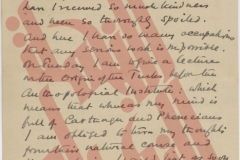 have I received so much kindness
and been so thoroughly spoiled.
And here I have so many occupations
that any serious work is impossible.
On Tuesday I am to give a lecture
on the Origin of the Turks before the
Anthropological Institute: which
means that whereas my mind is
full of Carthage and Phoenicians
I am obliged to turn my thoughts
from their natural course and